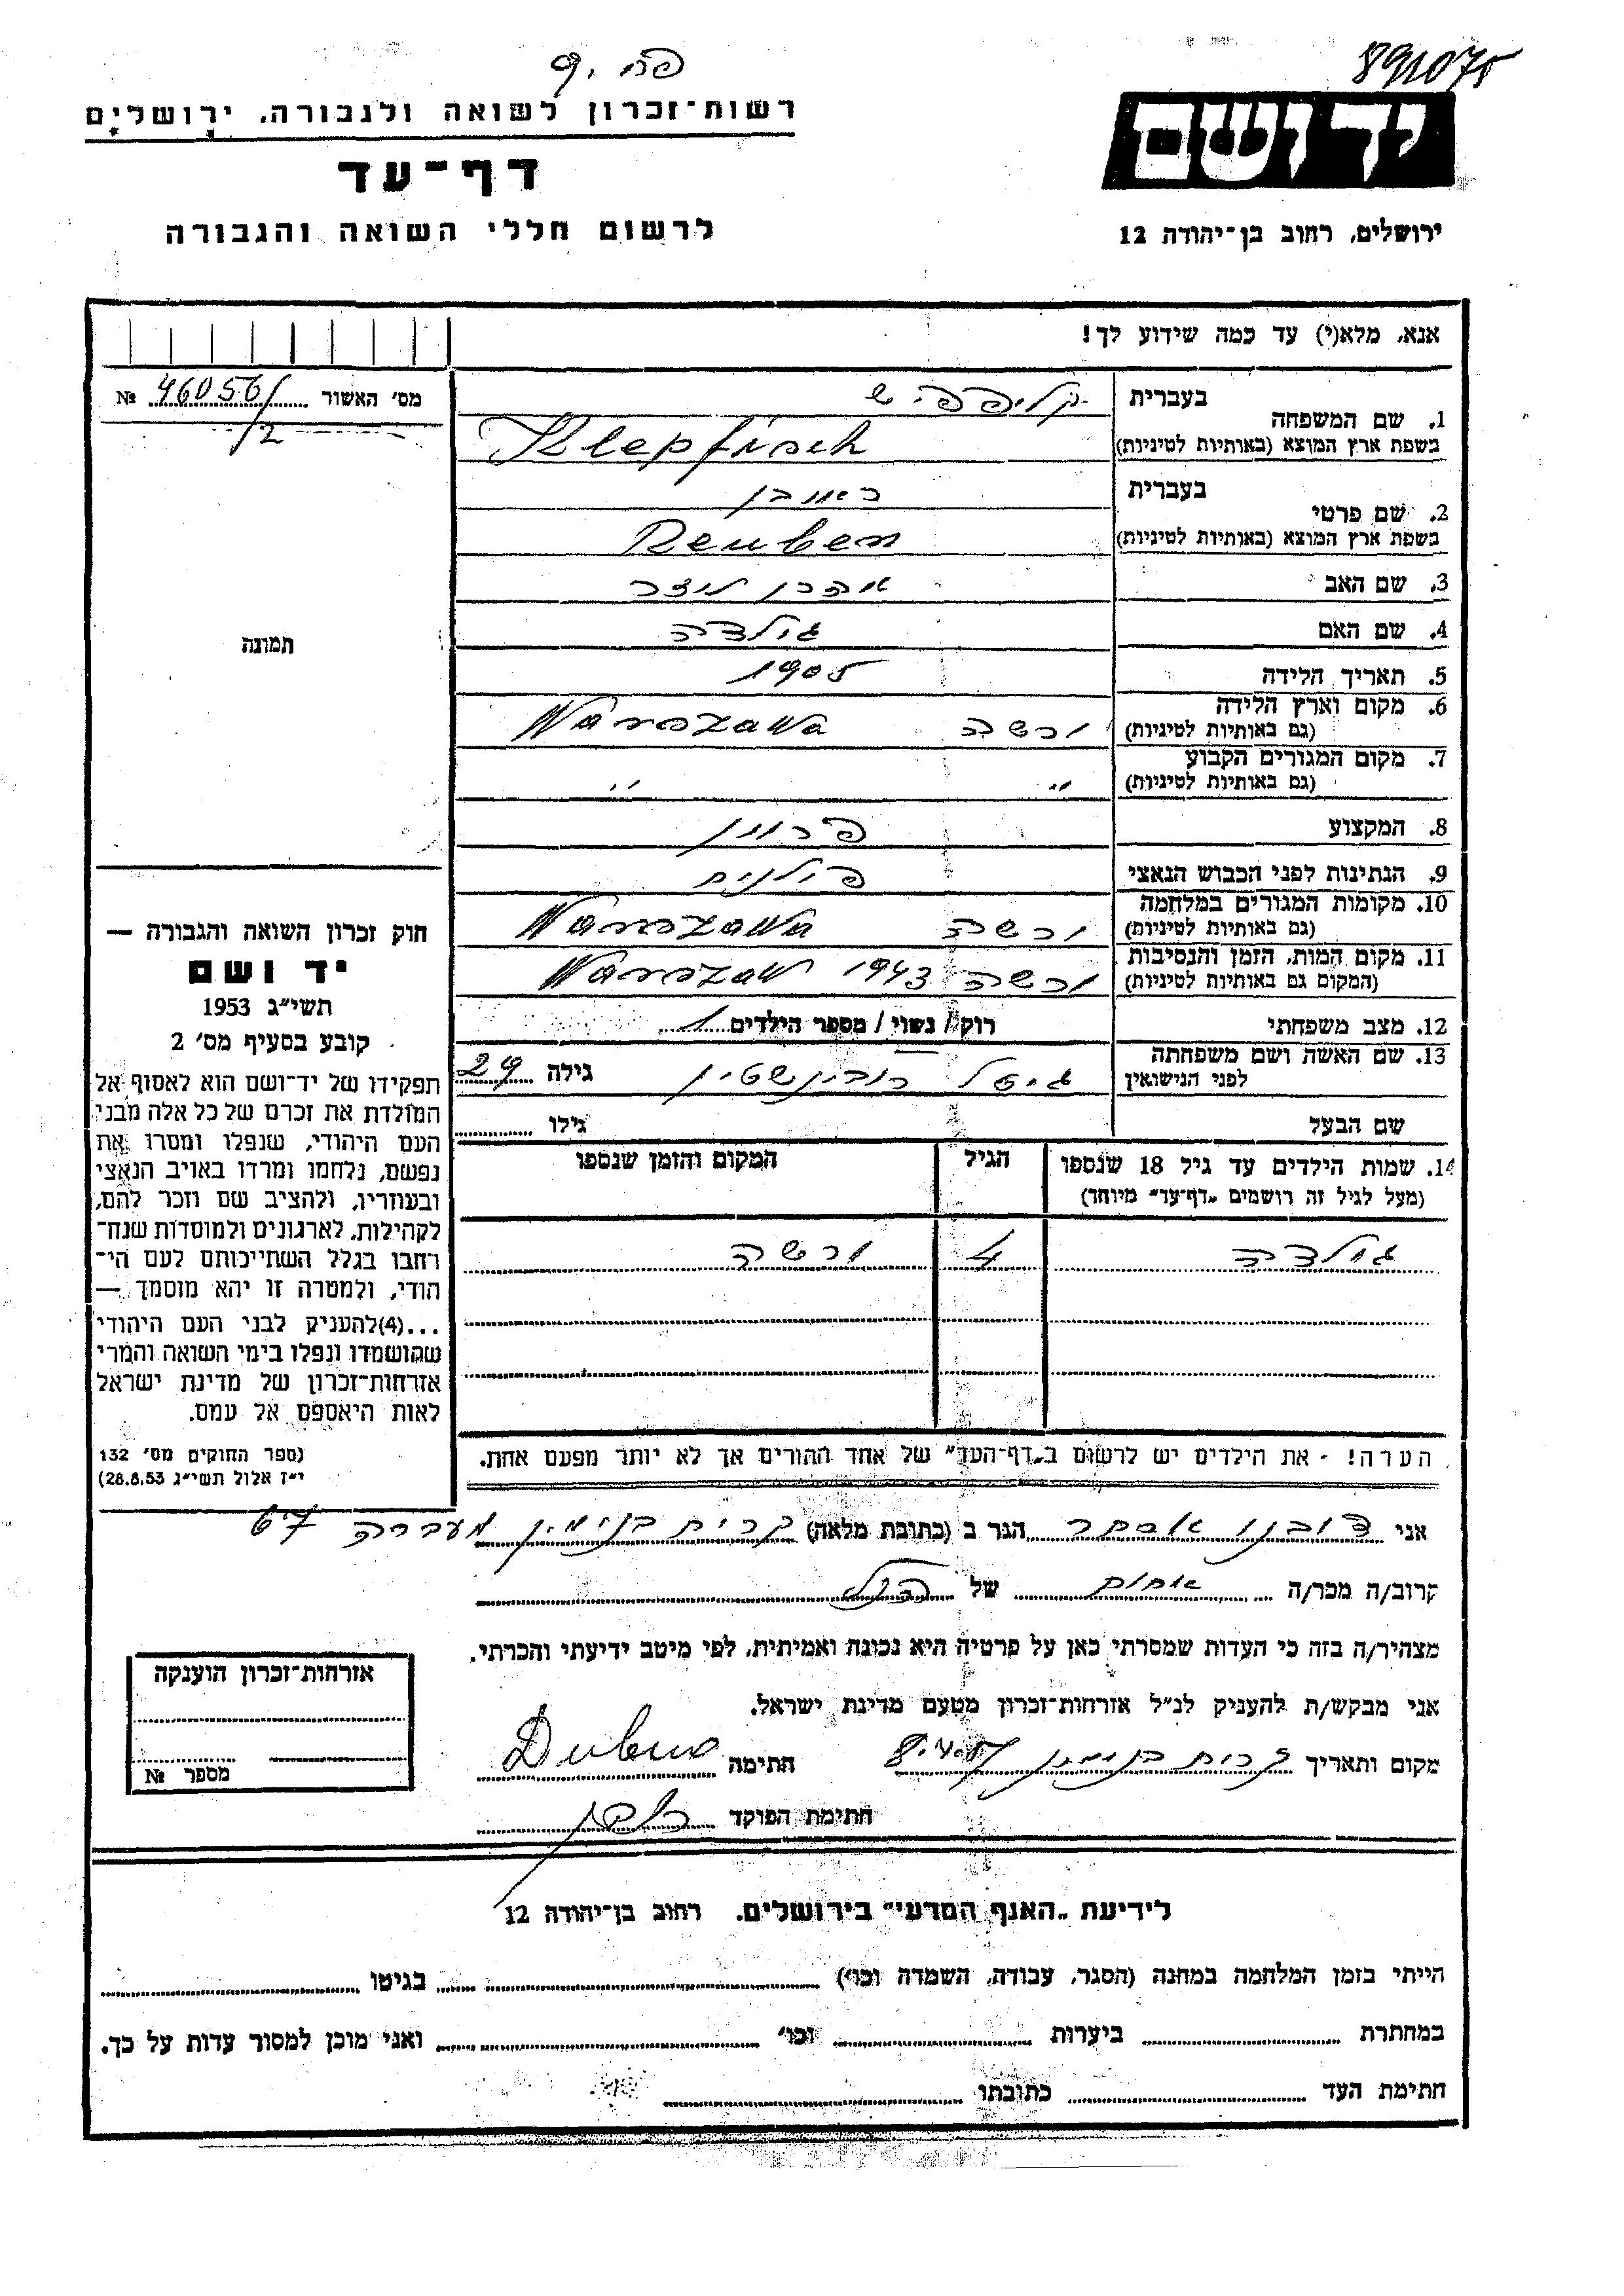 891075
פח. 9
רשות־זכרון לשואה ולגבורה, ירושלים
דף־עד
לרשום חללי השואה והגבורה
יד ושם
ירושלים, רחוב בן־יהודה 12
אנא, מלא(י) עד כמה שידוע לך!
מס׳ האשור 460561 №
/2
תמונה
1. שם המשפחה בעברית קליפפיש
בשפת ארץ המוצא (באותיות לטיניות) Klepfisch
2. שם פרטי בעברית ראובן
בשפת ארץ המוצא (באותיות לטיניות) Reuben
3. שם האב אהרן לוזר
4. שם האם גולדה
5. תאריך הלידה 1905
6. מקום וארץ הלידה (גם באותיות לטיניות) ורשה Warszawa
7. מקום המגורים הקבוע (גם באותיות לטיניות) " "
8. המקצוע פרוון
9. הנתינות לפני הכבוש הנאצי פולנית
10. מקומות המגורים במלחמה (גם באותיות לטיניות) ורשה Warszawa
11. מקום המות, הזמן והנסיבות (המקום גם באותיות לטיניות) ורשה 1943 Warszaw
12. מצב משפחתי רוק / נשוי / מספר הילדים 1
13. שם האשה ושם משפחתה לפני הנישואין גיטל רובינשטין גילה 29
שם הבעל גילו
14. שמות הילדים עד גיל 18 שנספו הגיל המקום והזמן שנספו
(מעל לגיל זה רושמים „דף־עד" מיוחד)
גולדה 4 ורשה
הערה! - את הילדים יש לרשום ב„דף־העד" של אחד ההורים אך לא יותר מפעם אחת.
חוק זכרון השואה והגבורה —
יד ושם
תשי״ג 1953
קובע בסעיף מס׳ 2
תפקידו של יד־ושם הוא לאסוף אל
המולדת את זכרם של כל אלה מבני
העם היהודי, שנפלו ומסרו את
נפשם, נלחמו ומרדו באויב הנאצי
ובעוזריו, ולהציב שם וזכר להם,
לקהילות, לארגונים ולמוסדות שנח־
רחבו בגלל השתייכותם לעם הי־
הודי, ולמטרה זו יהא מוסמך —
...(4)להעניק לבני העם היהודי
שהושמדו ונפלו בימי השואה והמרי
אזרחות־זכרון של מדינת ישראל
לאות היאספם אל עמם.
(ספר החוקים מס׳ 132
י״ז אלול תשי״ג 28.8.53)
אני דובנו אסתר הגר ב (כתובת מלאה) קרית בנימין מעברה 67
קרוב/ה מכר/ה אחות של הנ״ל
מצהיר/ה בזה כי העדות שמסרתי כאן על פרטיה היא נכונה ואמיתית, לפי מיטב ידיעתי והכרתי.
אני מבקש/ת להעניק לנ״ל אזרחות־זכרון מטעם מדינת ישראל.
מקום ותאריך קרית בנימין חתימה Dubno
חתימת הפוקד
אזרחות־זכרון הוענקה
מספר №
לידיעת „האגף המדעי" בירושלים, רחוב בן־יהודה 12
הייתי בזמן המלחמה במחנה (הסגר, עבודה, השמדה וכו׳) בגיטו
במחתרת ביערות וכו׳ ואני מוכן למסור עדות על כך.
חתימת העד כתובתו